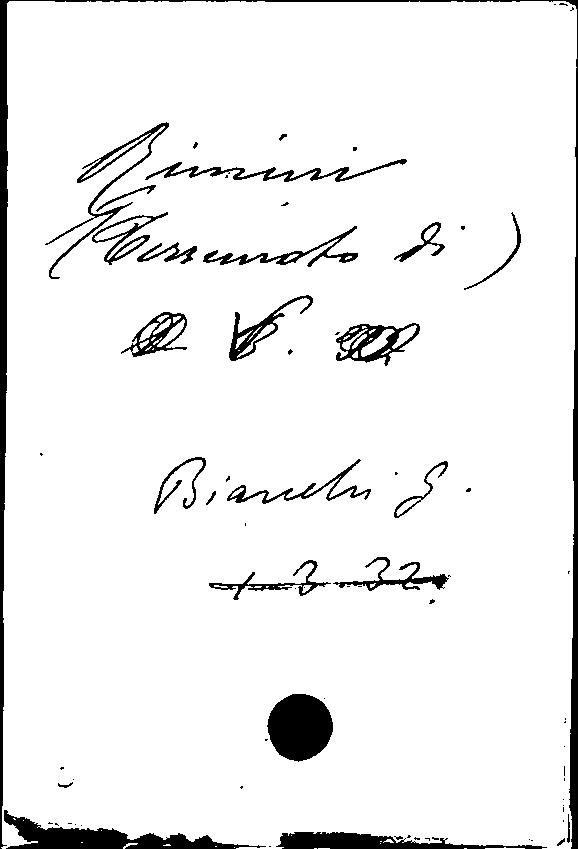 Rimini
(Terremoto di)
V.
Bianchi G.
1 3 32.